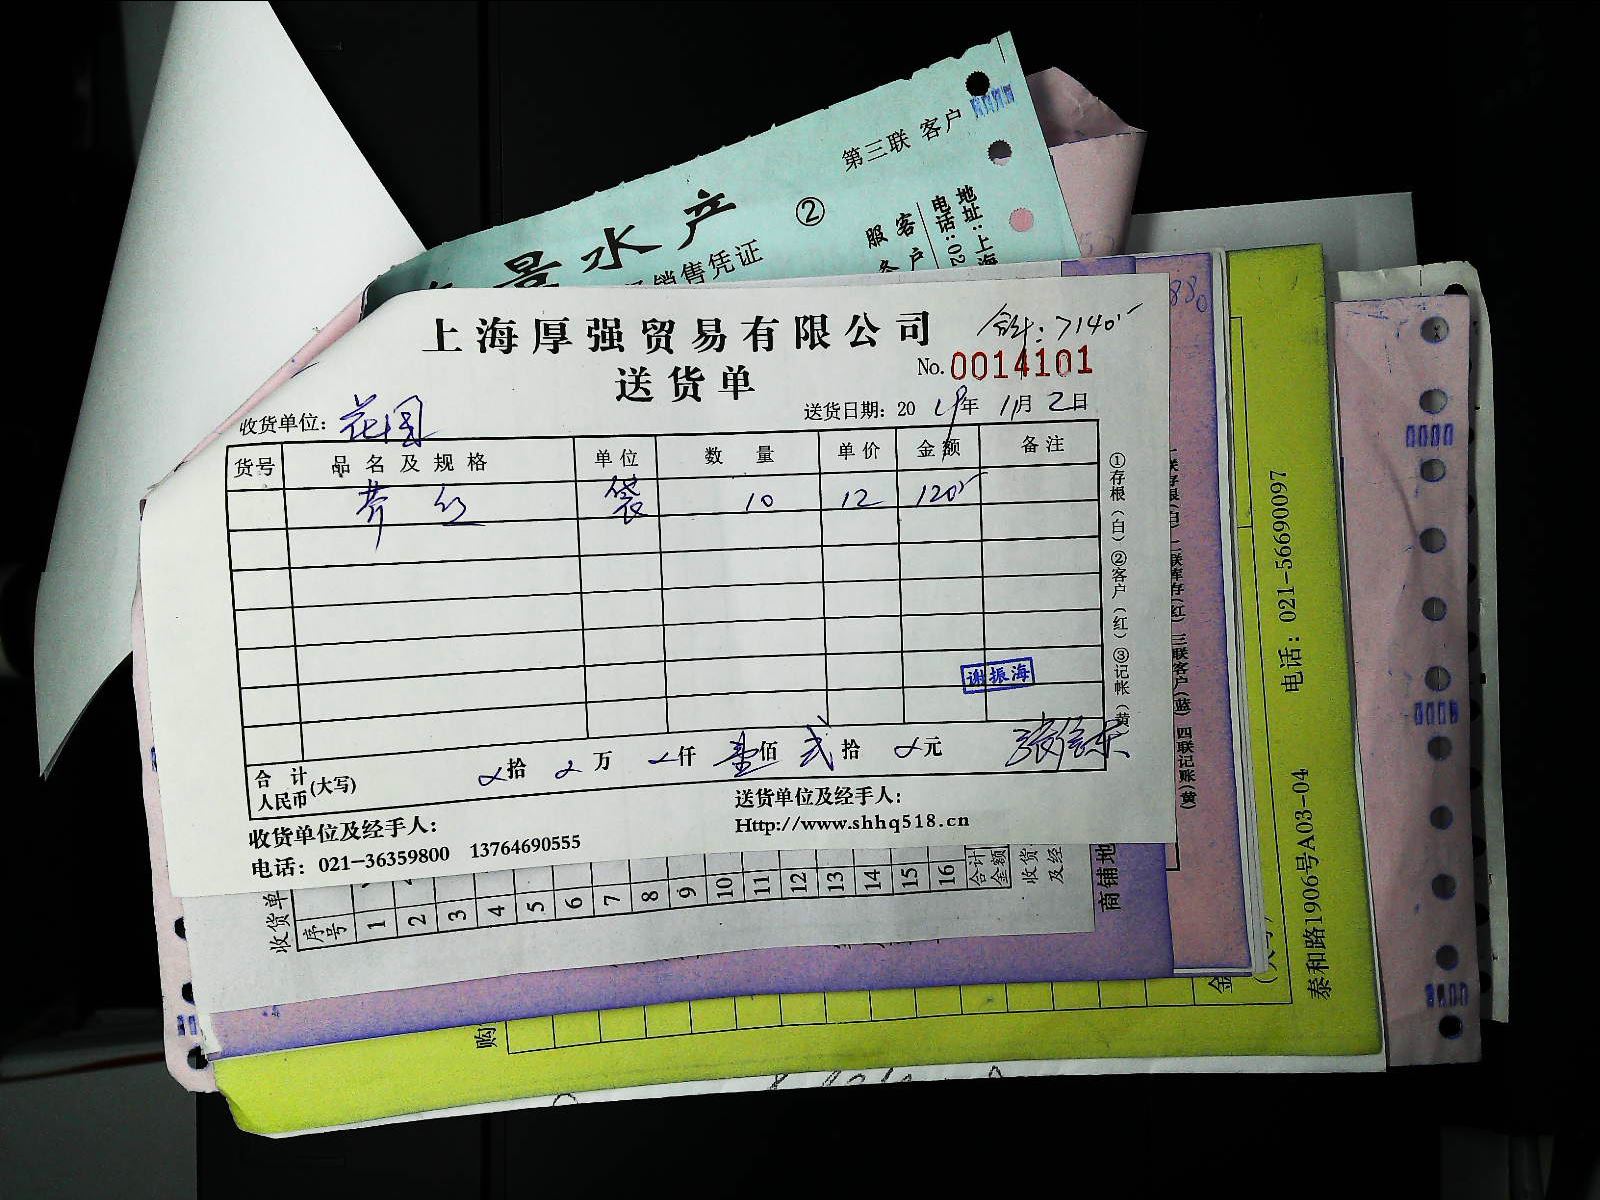 第三联 客户
②
景水产
销售凭证
地址：上海
电话：02
客户
服务
合计：7140
上海厚强贸易有限公司
No.0014101
送货单
收货单位：花园
送货日期：2019年11月2日
货号 品名及规格 单位 数量 单价 金额 备注
荠丝 袋 10 12 120
谢振海
合计人民币(大写) 拾 万 仟 壹佰 贰拾 元
收货单位及经手人：
送货单位及经手人：
电话：021-36359800 13764690555
Http://www.shhq518.cn
①存根(白) ②客户(红) ③记帐(黄)
二联库存(红) 三联客户(蓝) 四联记账(黄)
收货单
序号 1 2 3 4 5 6 7 8 9 10 11 12 13 14 15 16 合计金额
收货
及经
商铺地
购
金
泰和路1906号A03-04 电话：021-56690097